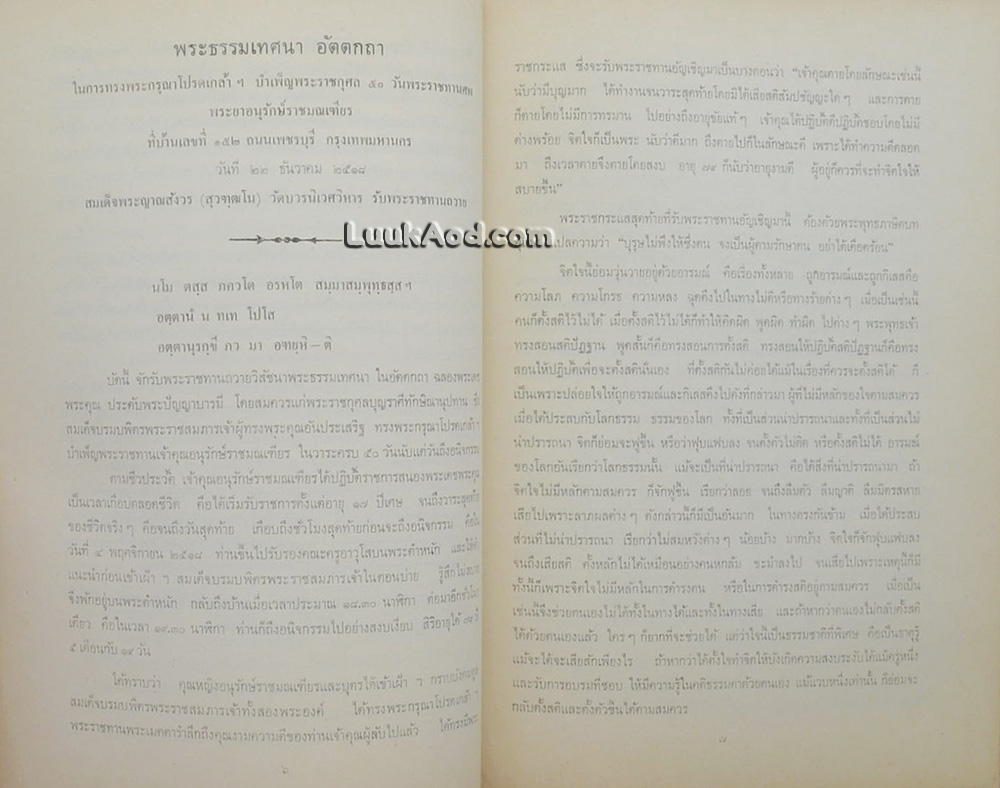 พระธรรมเทศนา อัตตกถา
ในการทรงพระกรุณาโปรดเกล้า ฯ บำเพ็ญพระราชกุศล ๕๐ วันพระราชทานศพ
พระยาอนุรักษ์ราชมณเฑียร
ที่บ้านเลขที่ ๑๕๒ ถนนเพชรบุรี กรุงเทพมหานคร
วันที่ ๒๒ ธันวาคม ๒๕๑๘
สมเด็จพระญาณสังวร (สุวฑฺฒโน) วัดบวรนิเวศวิหาร รับพระราชทานถวาย
นโม ตสฺส ภควโต อรหโต สมฺมาสมฺพุทฺธสฺส ฯ
อตฺตานํ น ทเท โปโส
อตฺตานุรกฺขี ภว มา อฑยฺหิ – ติ
บัดนี้ จักรับพระราชทานถวายวิสัชนาพระธรรมเทศนา ในอัตตกถา ฉลองพระเดช
พระคุณ ประดับพระปัญญาบารมี โดยสมควรแก่พระราชกุศลบุญราศีทักษิณานุปทาน ซึ่ง
สมเด็จบรมบพิตรพระราชสมภารเจ้าผู้ทรงพระคุณอันประเสริฐ ทรงพระกรุณาโปรดเกล้า ฯ
บำเพ็ญพระราชทานเจ้าคุณอนุรักษ์ราชมณเฑียร ในวาระครบ ๕๐ วันนับแต่วันถึงอนิจกรรม
ตามชีวประวัติ เจ้าคุณอนุรักษ์ราชมณเฑียรได้ปฏิบัติราชการสนองพระเดชพระคุณ
เป็นเวลาเกือบตลอดชีวิต คือได้เริ่มรับราชการตั้งแต่อายุ ๑๗ ปีเศษ จนถึงวาระสุดท้าย
ของชีวิตจริง ๆ คือจนถึงวันสุดท้าย เกือบถึงชั่วโมงสุดท้ายก่อนจะถึงอนิจกรรม คือใน
วันที่ ๔ พฤศจิกายน ๒๕๑๘ ท่านขึ้นไปรับรองคณะครูอาวุโสบนพระตำหนัก และให้คำ
แนะนำก่อนเข้าเฝ้า ฯ สมเด็จบรมบพิตรพระราชสมภารเจ้าในตอนบ่าย รู้สึกไม่สบาย
จึงพักอยู่บนพระตำหนัก กลับถึงบ้านเมื่อเวลาประมาณ ๑๘.๓๐ นาฬิกา ต่อมาอีกชั่วโมง
เดียว คือในเวลา ๑๙.๓๐ นาฬิกา ท่านก็ถึงอนิจกรรมไปอย่างสงบเงียบ สิริอายุได้ ๗๙ ปี
๕ เดือนกับ ๑๙ วัน
ได้ทราบว่า คุณหญิงอนุรักษ์ราชมณเฑียรและบุตรได้เข้าเฝ้า ฯ กราบบังคมทูล
สมเด็จบรมบพิตรพระราชสมภารเจ้าทั้งสองพระองค์ ได้ทรงพระกรุณาโปรดเกล้า ฯ
พระราชทานพระเมตตารำลึกถึงคุณงามความดีของท่านเจ้าคุณผู้ลับไปแล้ว ได้ทรงมีพระ
๖
ราชกระแส ซึ่งจะรับพระราชทานอัญเชิญมาเป็นบางตอนว่า “เจ้าคุณตายโดยลักษณะเช่นนี้
นับว่ามีบุญมาก ได้ทำงานจนวาระสุดท้ายโดยมิได้เสียสติสัมปชัญญะใด ๆ และการตาย
ก็ตายโดยไม่มีการทรมาน ไปอย่างถึงอายุขัยแท้ ๆ เจ้าคุณได้ปฏิบัติดีปฏิบัติชอบโดยไม่มี
ด่างพร้อย จิตใจก็เป็นพระ นับว่าดีมาก ถึงตายไปก็ในลักษณะดี เพราะได้ทำความดีตลอด
มา ถึงเวลาตายจึงตายโดยสงบ อายุ ๗๙ ก็นับว่าอายุงามดี ผู้อยู่ก็ควรที่จะทำจิตใจให้
สบายขึ้น”
พระราชกระแสสุดท้ายที่รับพระราชทานอัญเชิญมานี้ ต้องด้วยพระพุทธภาษิตบท
แปลความว่า “บุรุษไม่พึงให้ซึ่งตน จงเป็นผู้ตามรักษาตน อย่าได้เดือดร้อน”
จิตใจนี้ย่อมวุ่นวายอยู่ด้วยอารมณ์ คือเรื่องทั้งหลาย ถูกอารมณ์และถูกกิเลสคือ
ความโลภ ความโกรธ ความหลง ฉุดดึงไปในทางไม่ดีหรือทางร้ายต่าง ๆ เมื่อเป็นเช่นนี้
คนก็ตั้งสติไว้ไม่ได้ เมื่อตั้งสติไว้ไม่ได้ก็ทำให้คิดผิด พูดผิด ทำผิด ไปต่าง ๆ พระพุทธเจ้า
ทรงสอนสติปัฏฐาน พูดสั้นก็คือทรงสอนการตั้งสติ ทรงสอนให้ปฏิบัติสติปัฏฐานก็คือทรง
สอนให้ปฏิบัติเพื่อจะตั้งสตินั่นเอง ที่ตั้งสติกันไม่ค่อยได้แม้ในเรื่องที่ควรจะตั้งสติได้ ก็
เป็นเพราะปล่อยใจให้ถูกอารมณ์และกิเลสดึงไปดังที่กล่าวมา ผู้ที่ไม่มีหลักของใจตามสมควร
เมื่อได้ประสบกับโลกธรรม ธรรมของโลก ทั้งที่เป็นส่วนน่าปรารถนาและทั้งที่เป็นส่วนไม่
น่าปรารถนา จิตก็ย่อมจะฟูขึ้น หรือว่าฟุบแฟบลง จนตั้งตัวไม่ติด หรือตั้งสติไม่ได้ อารมณ์
ของโลกอันเรียกว่าโลกธรรมนั้น แม้จะเป็นที่น่าปรารถนา คือได้สิ่งที่น่าปรารถนามา ถ้า
จิตใจไม่มีหลักตามสมควร ก็จักฟูขึ้น เรียกว่าลอย จนถึงลืมตัว ลืมญาติ ลืมมิตรสหาย
เสียไปเพราะลาภผลต่าง ๆ ดังกล่าวนี้ก็มีเป็นอันมาก ในทางตรงกันข้าม เมื่อได้ประสบ
ส่วนที่ไม่น่าปรารถนา เรียกว่าไม่สมหวังต่าง ๆ น้อยบ้าง มากบ้าง จิตใจก็จักฟุบแฟบลง
จนถึงเสียสติ ตั้งหลักไม่ได้เหมือนอย่างคนหกล้ม ซะมำลงไป จนเสียไปเพราะเหตุนี้ก็มี
ทั้งนี้ก็เพราะจิตใจไม่มีหลักในการดำรงตน หรือในการดำรงสติอยู่ตามสมควร เมื่อเป็น
เช่นนี้จึงช่วยตนเองไม่ได้ทั้งในทางได้และทั้งในทางเสีย และถ้าหากว่าตนเองไม่กลับตั้งสติ
ได้ด้วยตนเองแล้ว ใคร ๆ ก็ยากที่จะช่วยได้ แต่ว่าใจนี้เป็นธรรมชาติที่พิเศษ คือเป็นธาตุรู้
แม้จะได้จะเสียสักเพียงไร ถ้าหากว่าได้ตั้งใจทำจิตให้บังเกิดความสงบระงับได้แม้ครู่หนึ่ง
และรับการอบรมที่ชอบ ให้มีความรู้ในคติธรรมดาด้วยตนเอง แม้แวบหนึ่งเท่านั้น ก็ย่อมจะ
กลับตั้งสติและตั้งตัวขึ้นได้ตามสมควร
๗
LuukAod.com